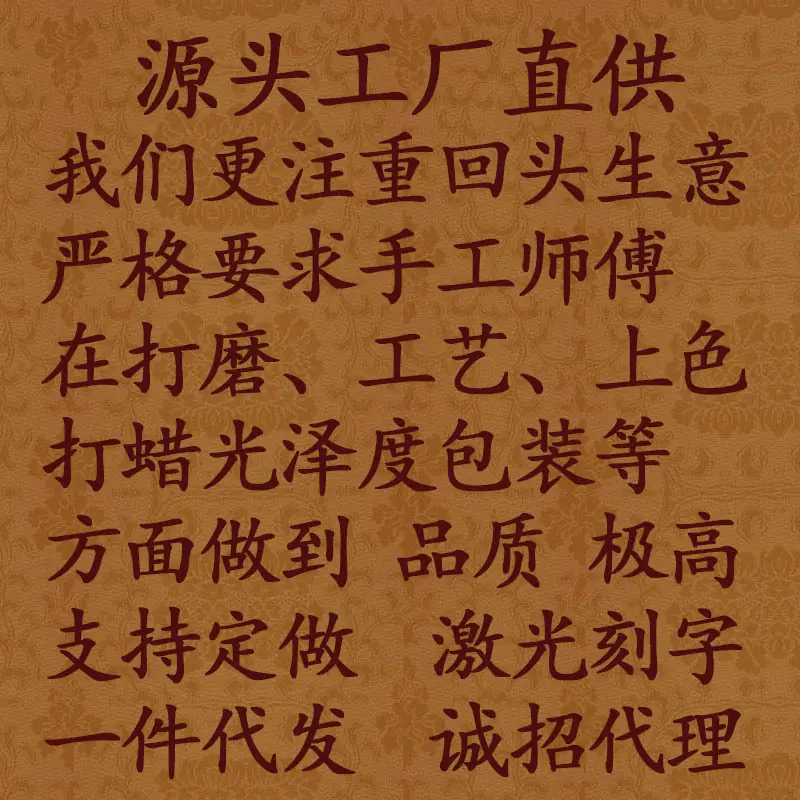 源头工厂直供
我们更注重回头生意
严格要求手工师傅
在打磨、工艺、上色
打蜡光泽度包装等
方面做到 品质 极高
支持定做 激光刻字
一件代发 诚招代理